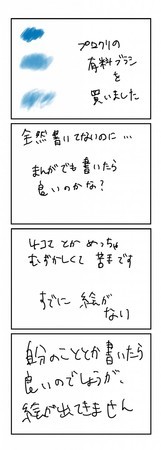 プロクリの
有料ブラシ
を
買いました
全然書いてないのに…
まんがでも書いたら
良いのかな？
4コマとかめっちゃ
むずかしくて苦手です
すでに絵が
ない
自分のこととか書いたら
良いのでしょうが、
絵が出てきません